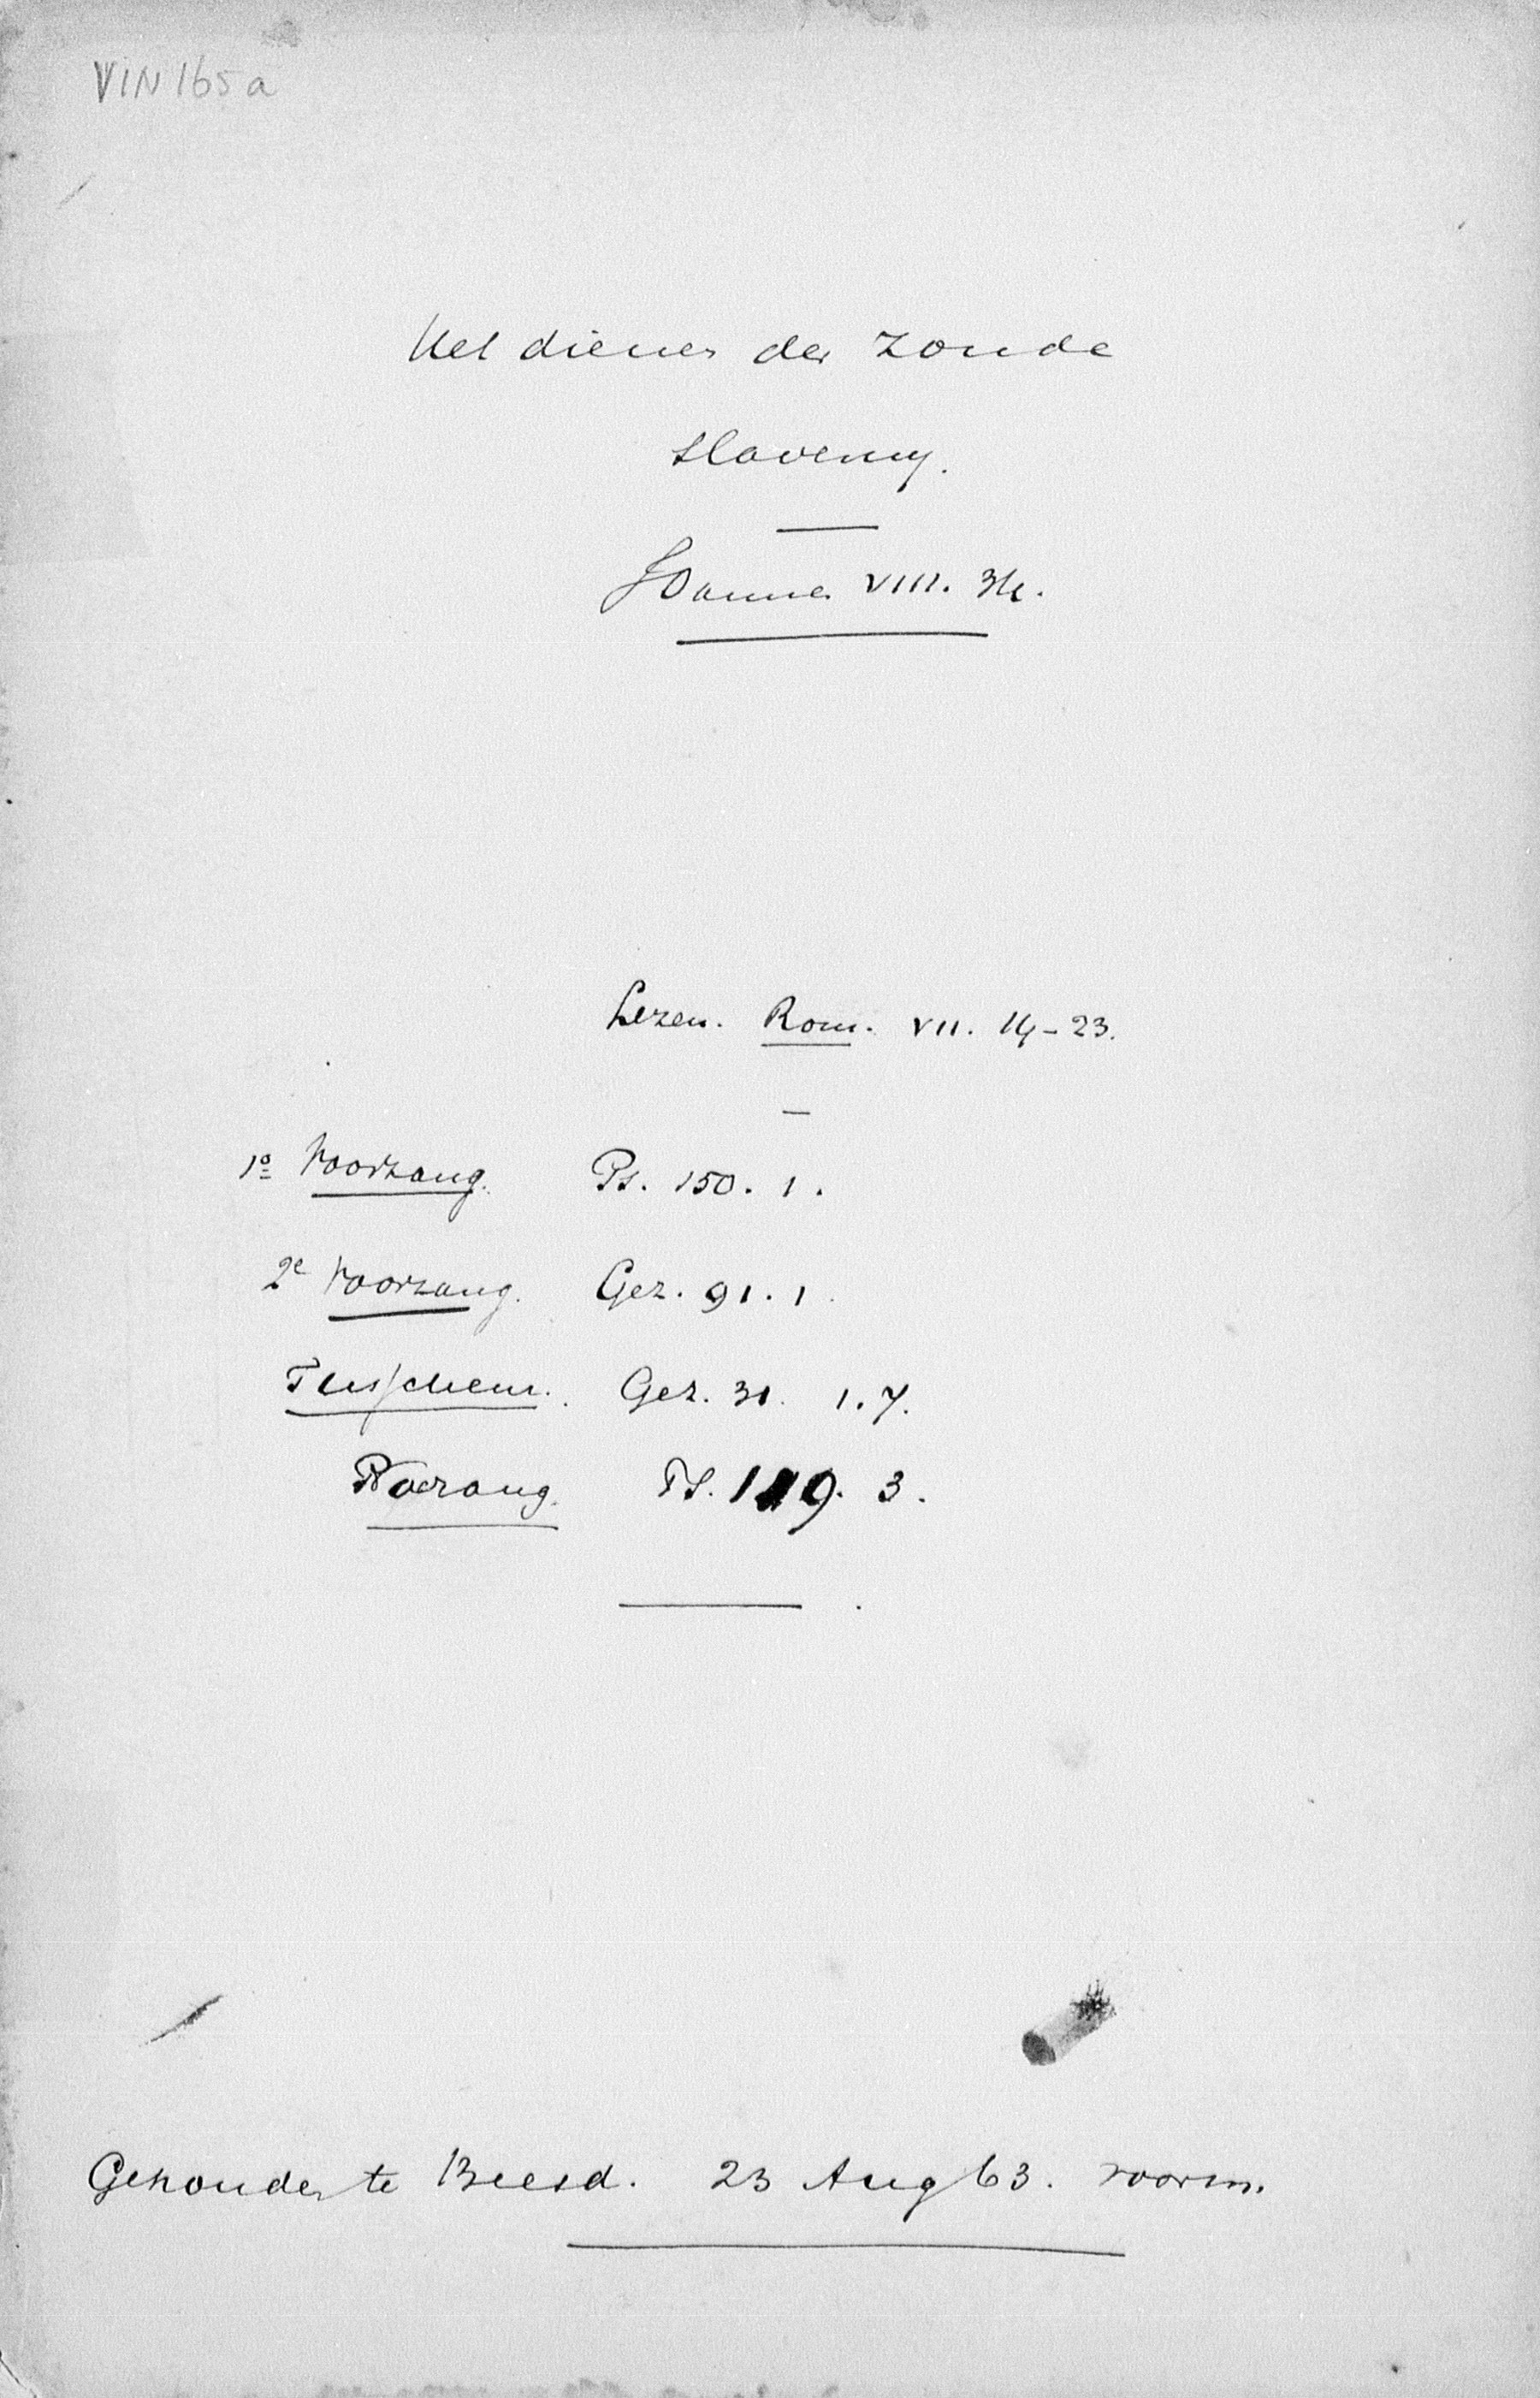 VIN 165 a
Het dienen der Zonde
slaverny.
Joannes VIII. 34.
Lezen. Rom. VII. 14-23.
1º Voorzang. Ps. 150. 1.
2e Voorzang. Gez. 91. 1.
Tusschenz. Gez. 31. 1. 7.
Nazang. Ps. 119. 3.
Gehouden te Beesd. 23 Aug 63. voorm.